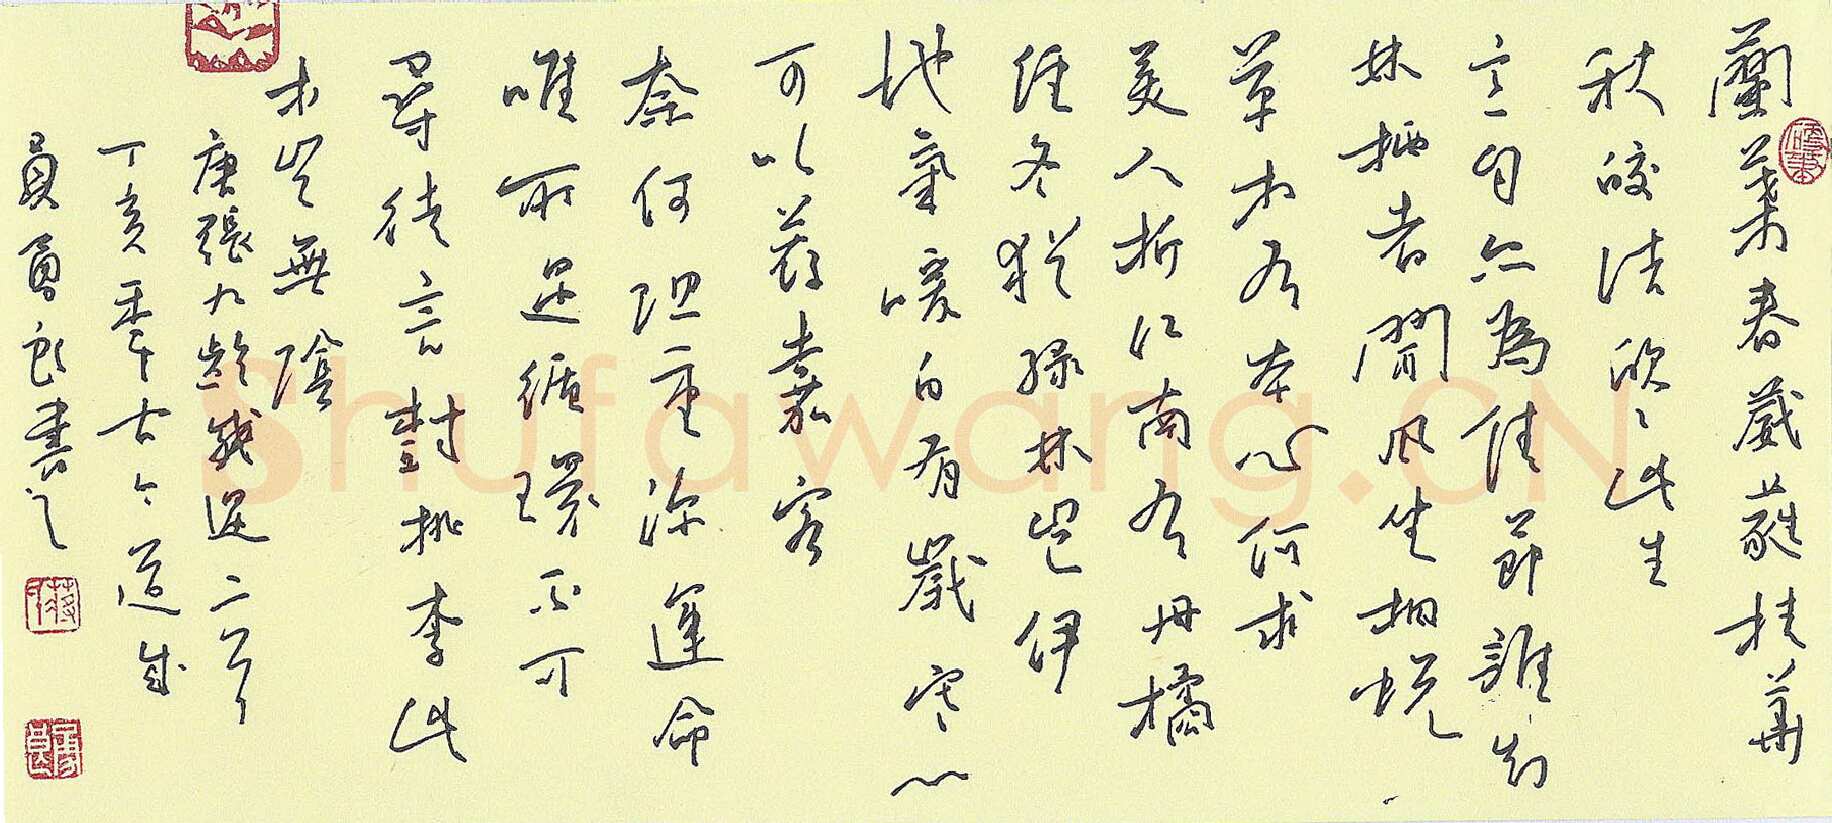 蘭葉春葳蕤桂華
秋皎潔欣欣此生
意自爾為佳節誰知
林栖者聞風坐相悅
草木有本心何求
美人折江南有丹橘
經冬猶綠林豈伊
地氣暖自有歲寒心
可以薦嘉客
奈何阻重深運命
唯所遇循環不可
尋徒言樹桃李此
木豈無陰
唐張九齡感遇二首
丁亥年
書之
Shufawang.CN